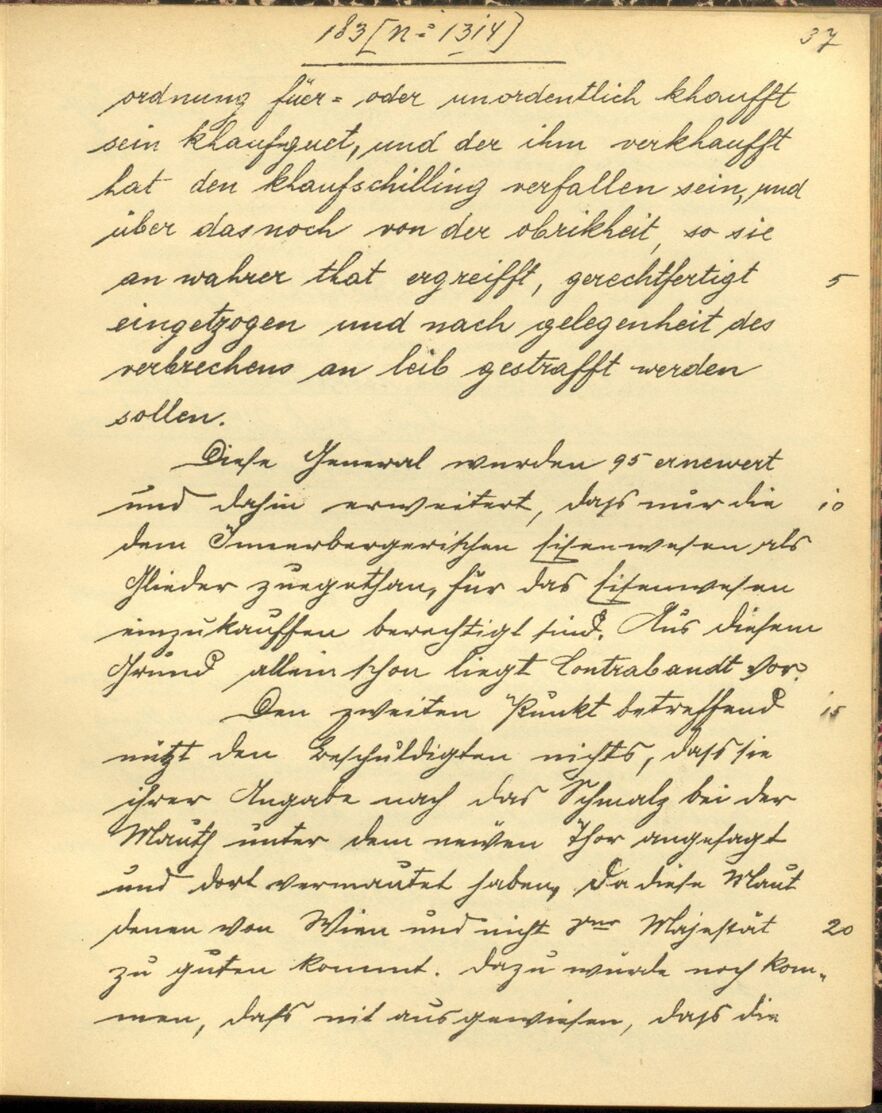 183 [N° 1314]
37
ordnung füer= oder unordentlich khaufft
sein khaufguet, und der ihm verkhaufft
hat den khaufschilling verfallen sein, und
über das noch von der obrikheit, so sie
an wahrer that ergreifft, gerechtfertigt 5
eingetzogen und nach gelegenheit des
verbrechens an leib gestrafft werden
sollen.
Diese General wurden 95 ernewert
und dahin erweitert, dass nur die 10
dem Innerbergerischen Eisenwesen als
Glieder zuegethan, für das Eisenwesen
einzukauffen berechtigt sind. Aus diesem
Grund allein schon liegt Contrabandt vor.
Den zweiten Punkt betreffend 15
nützt den Beschuldigten nichts, dass sie
ihrer Angabe nach das Schmalz bei der
Mauth unter dem neuen Thor angesagt
und dort vermautet haben, da diese Maut
denen von Wien und nicht Majestät 20
zu guten kommt. Dazu würde noch kom-
men, dass nit ausgewiesen, dass die